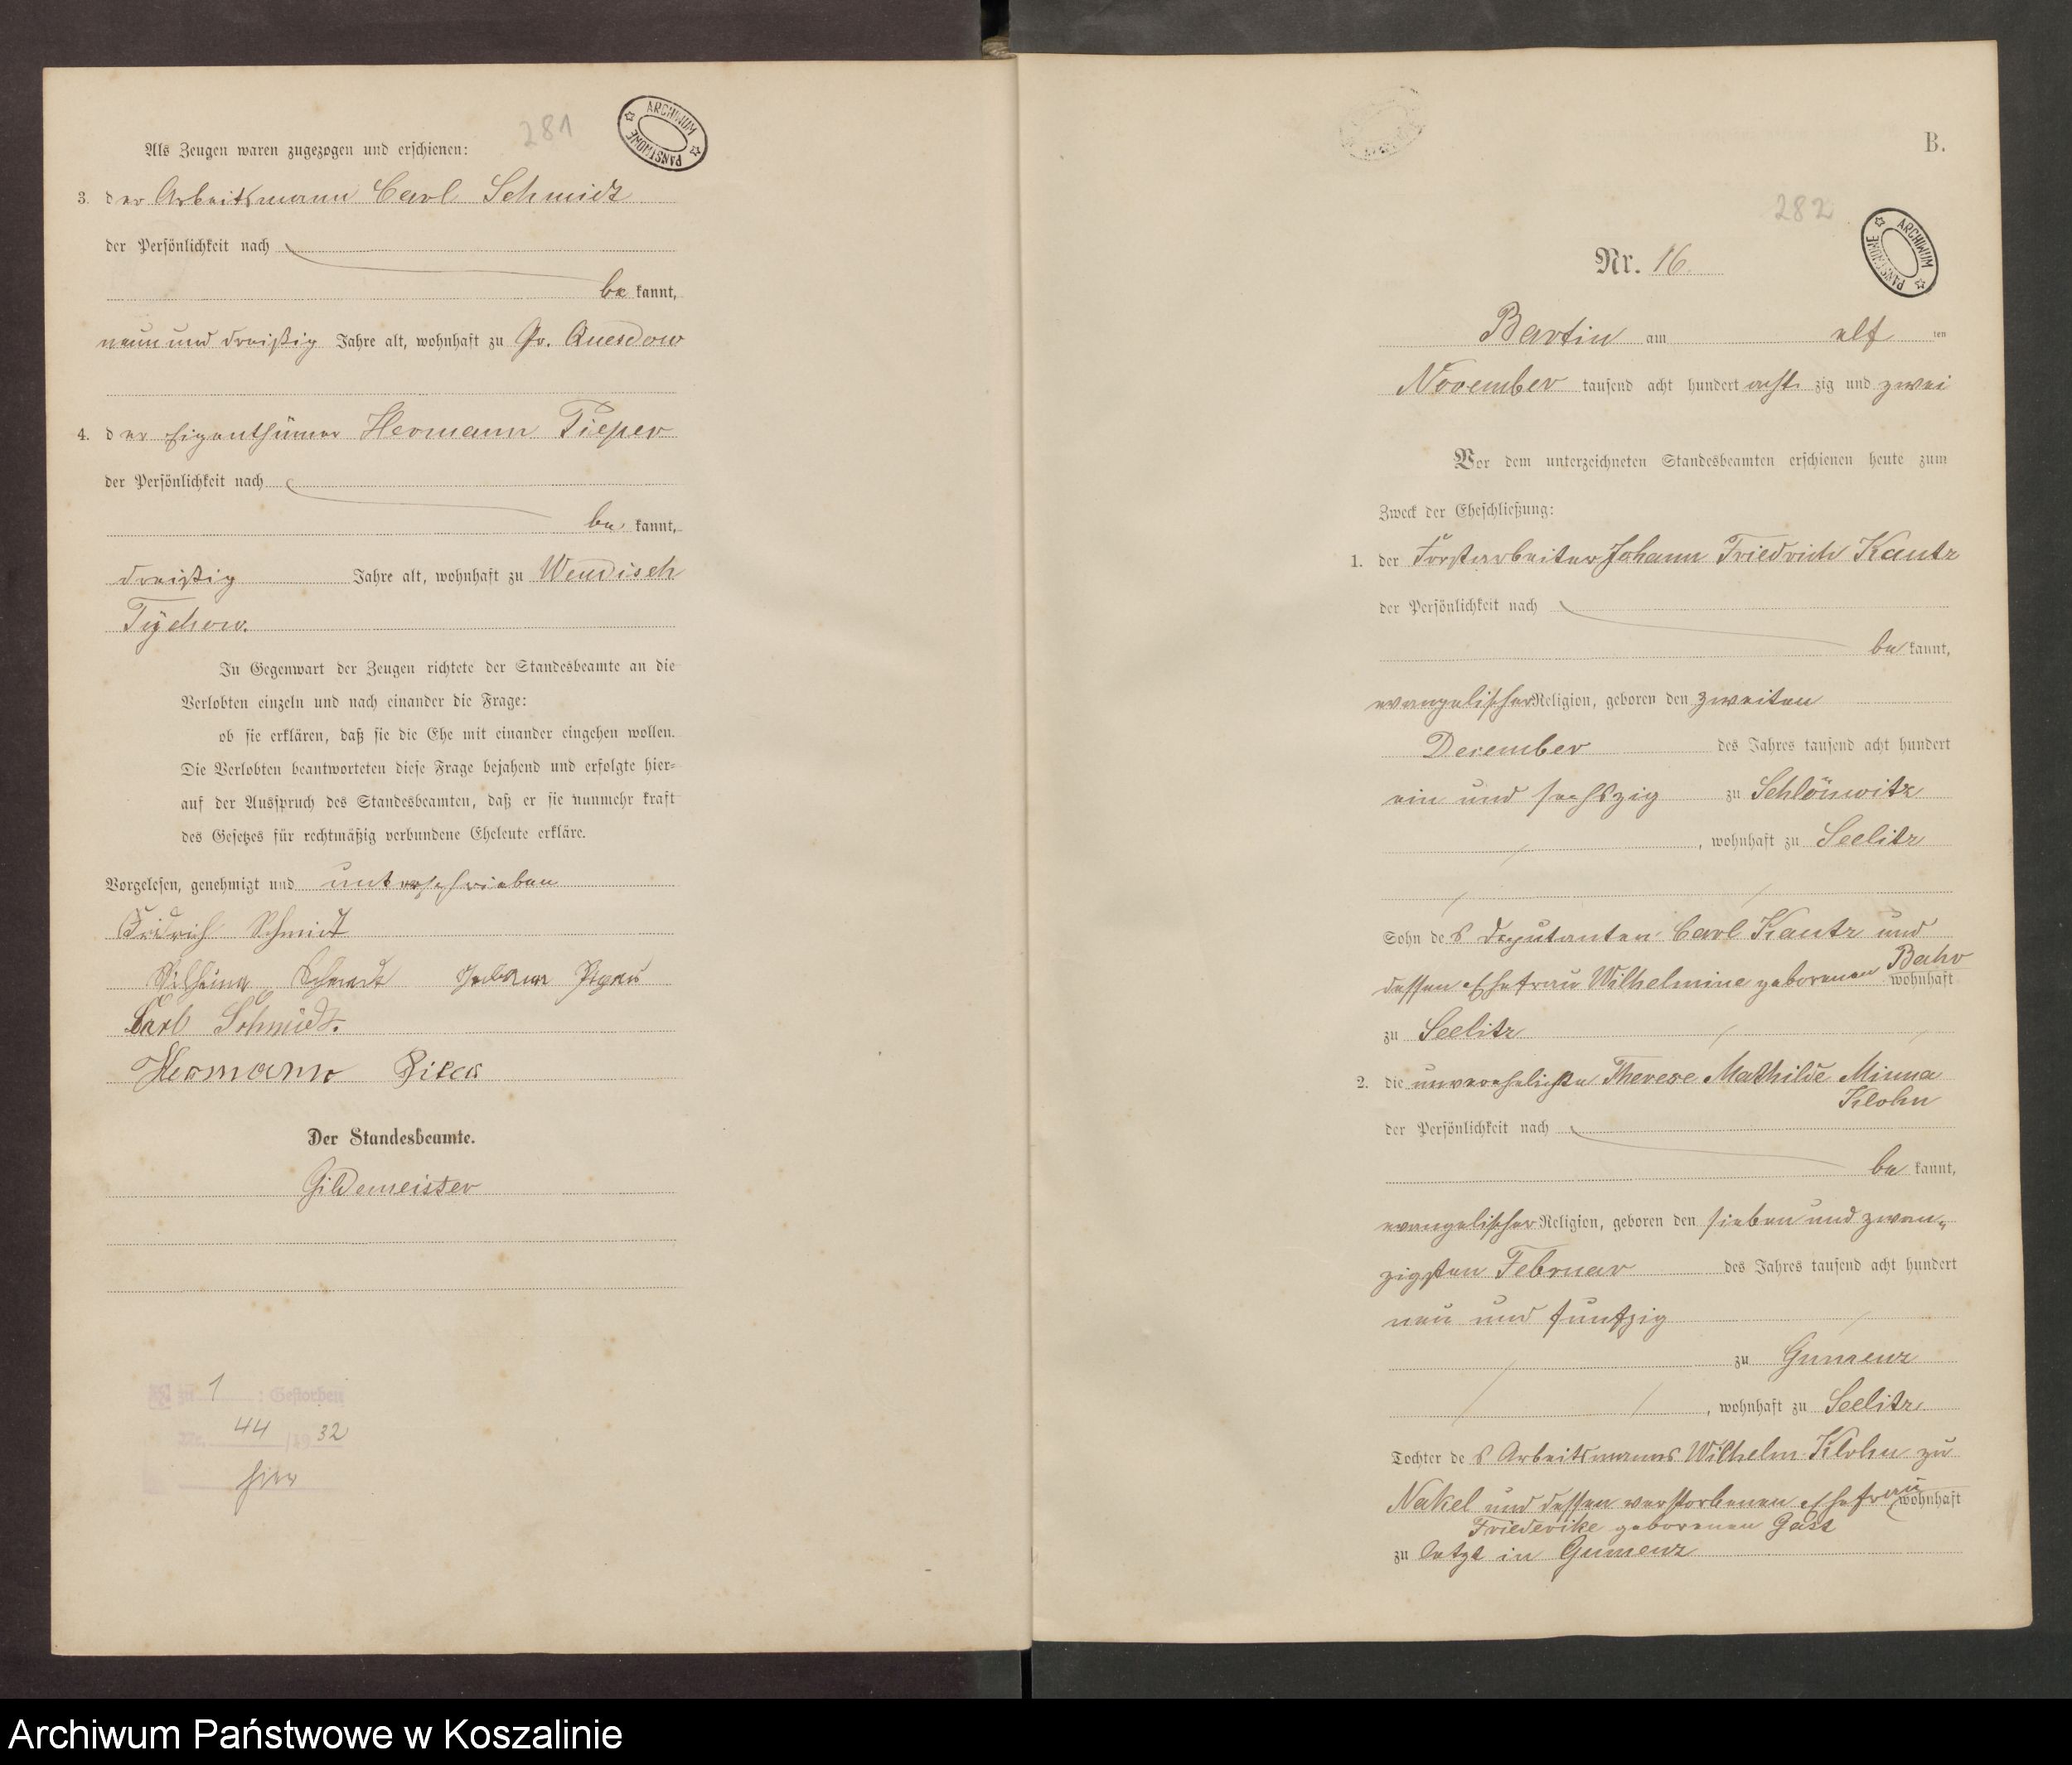 281
ARCHIWUM PAŃSTWOWE
Als Zeugen waren zugezogen und erschienen:
3. der Arbeitsmann Carl Schmidt
der Persönlichkeit nach
be kannt,
neun und dreißig Jahre alt, wohnhaft zu Gr. Quesdow
4. der Eigenthümer Hermann Pieper
der Persönlichkeit nach
be kannt,
dreißig Jahre alt, wohnhaft zu Wendisch
Tychow.
In Gegenwart der Zeugen richtete der Standesbeamte an die
Verlobten einzeln und nach einander die Frage:
ob sie erklären, daß sie die Ehe mit einander eingehen wollen.
Die Verlobten beantworteten diese Frage bejahend und erfolgte hier-
auf der Ausspruch des Standesbeamten, daß er sie nunmehr kraft
des Gesetzes für rechtmäßig verbundene Eheleute erkläre.
Vorgelesen, genehmigt und unterschrieben
Fridrich Schmidt
Schmidt
Carl Schmidt.
Hermann
Der Standesbeamte.
Gildemeister
zu 1 : Gestorben
Nr. 44 /19 32
hier
B.
282
ARCHIWUM PAŃSTWOWE
Nr. 16.
Bartin am elf ten
November tausend acht hundert acht zig und zwei
Vor dem unterzeichneten Standesbeamten erschienen heute zum
Zweck der Eheschließung:
1. der Forstarbeiter Johann Friedrich Kautz
der Persönlichkeit nach
be kannt,
evangelischer Religion, geboren den zweiten
December des Jahres tausend acht hundert
ein und sechszig zu Schlönwitz
, wohnhaft zu Seelitz
Sohn des Deputanten Carl Kautz und
dessen Ehefrau Wilhelmine geborenen Bahr
wohnhaft
zu Seelitz
2. die unverehelichte Therese Mathilde Minna
Klohn
der Persönlichkeit nach
be kannt,
evangelischer Religion, geboren den sieben und zwan-
zigsten Februar des Jahres tausend acht hundert
neun und funfzig
zu Gumenz
, wohnhaft zu Seelitz
Tochter des Arbeitsmanns Wilhelm Klohn zu
Nakel und dessen verstorbenen Ehefrau wohnhaft
Friederike geborenen Gast
zu letzt in Gumenz
Archiwum Państwowe w Koszalinie